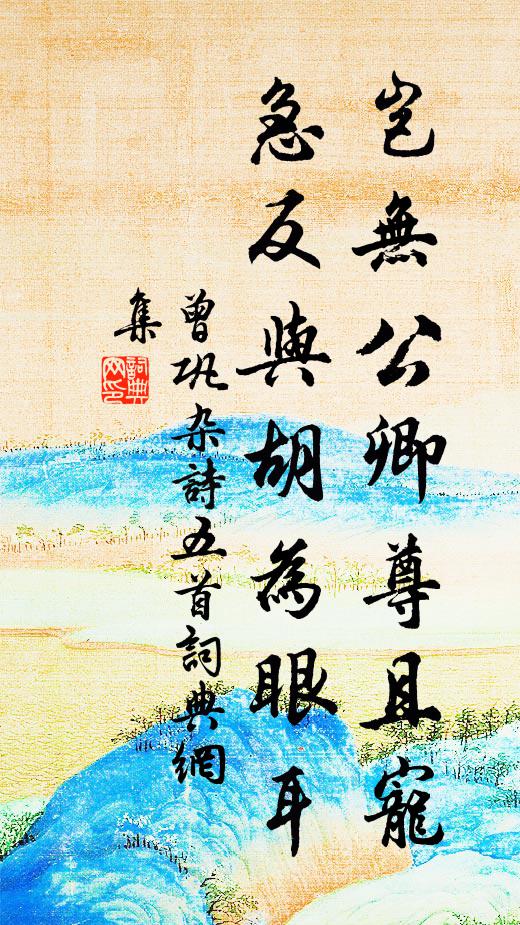 豈無公卿尊且寵
急反與胡為眼耳
曾巩杂詩五首詞典網
集
詞典网印